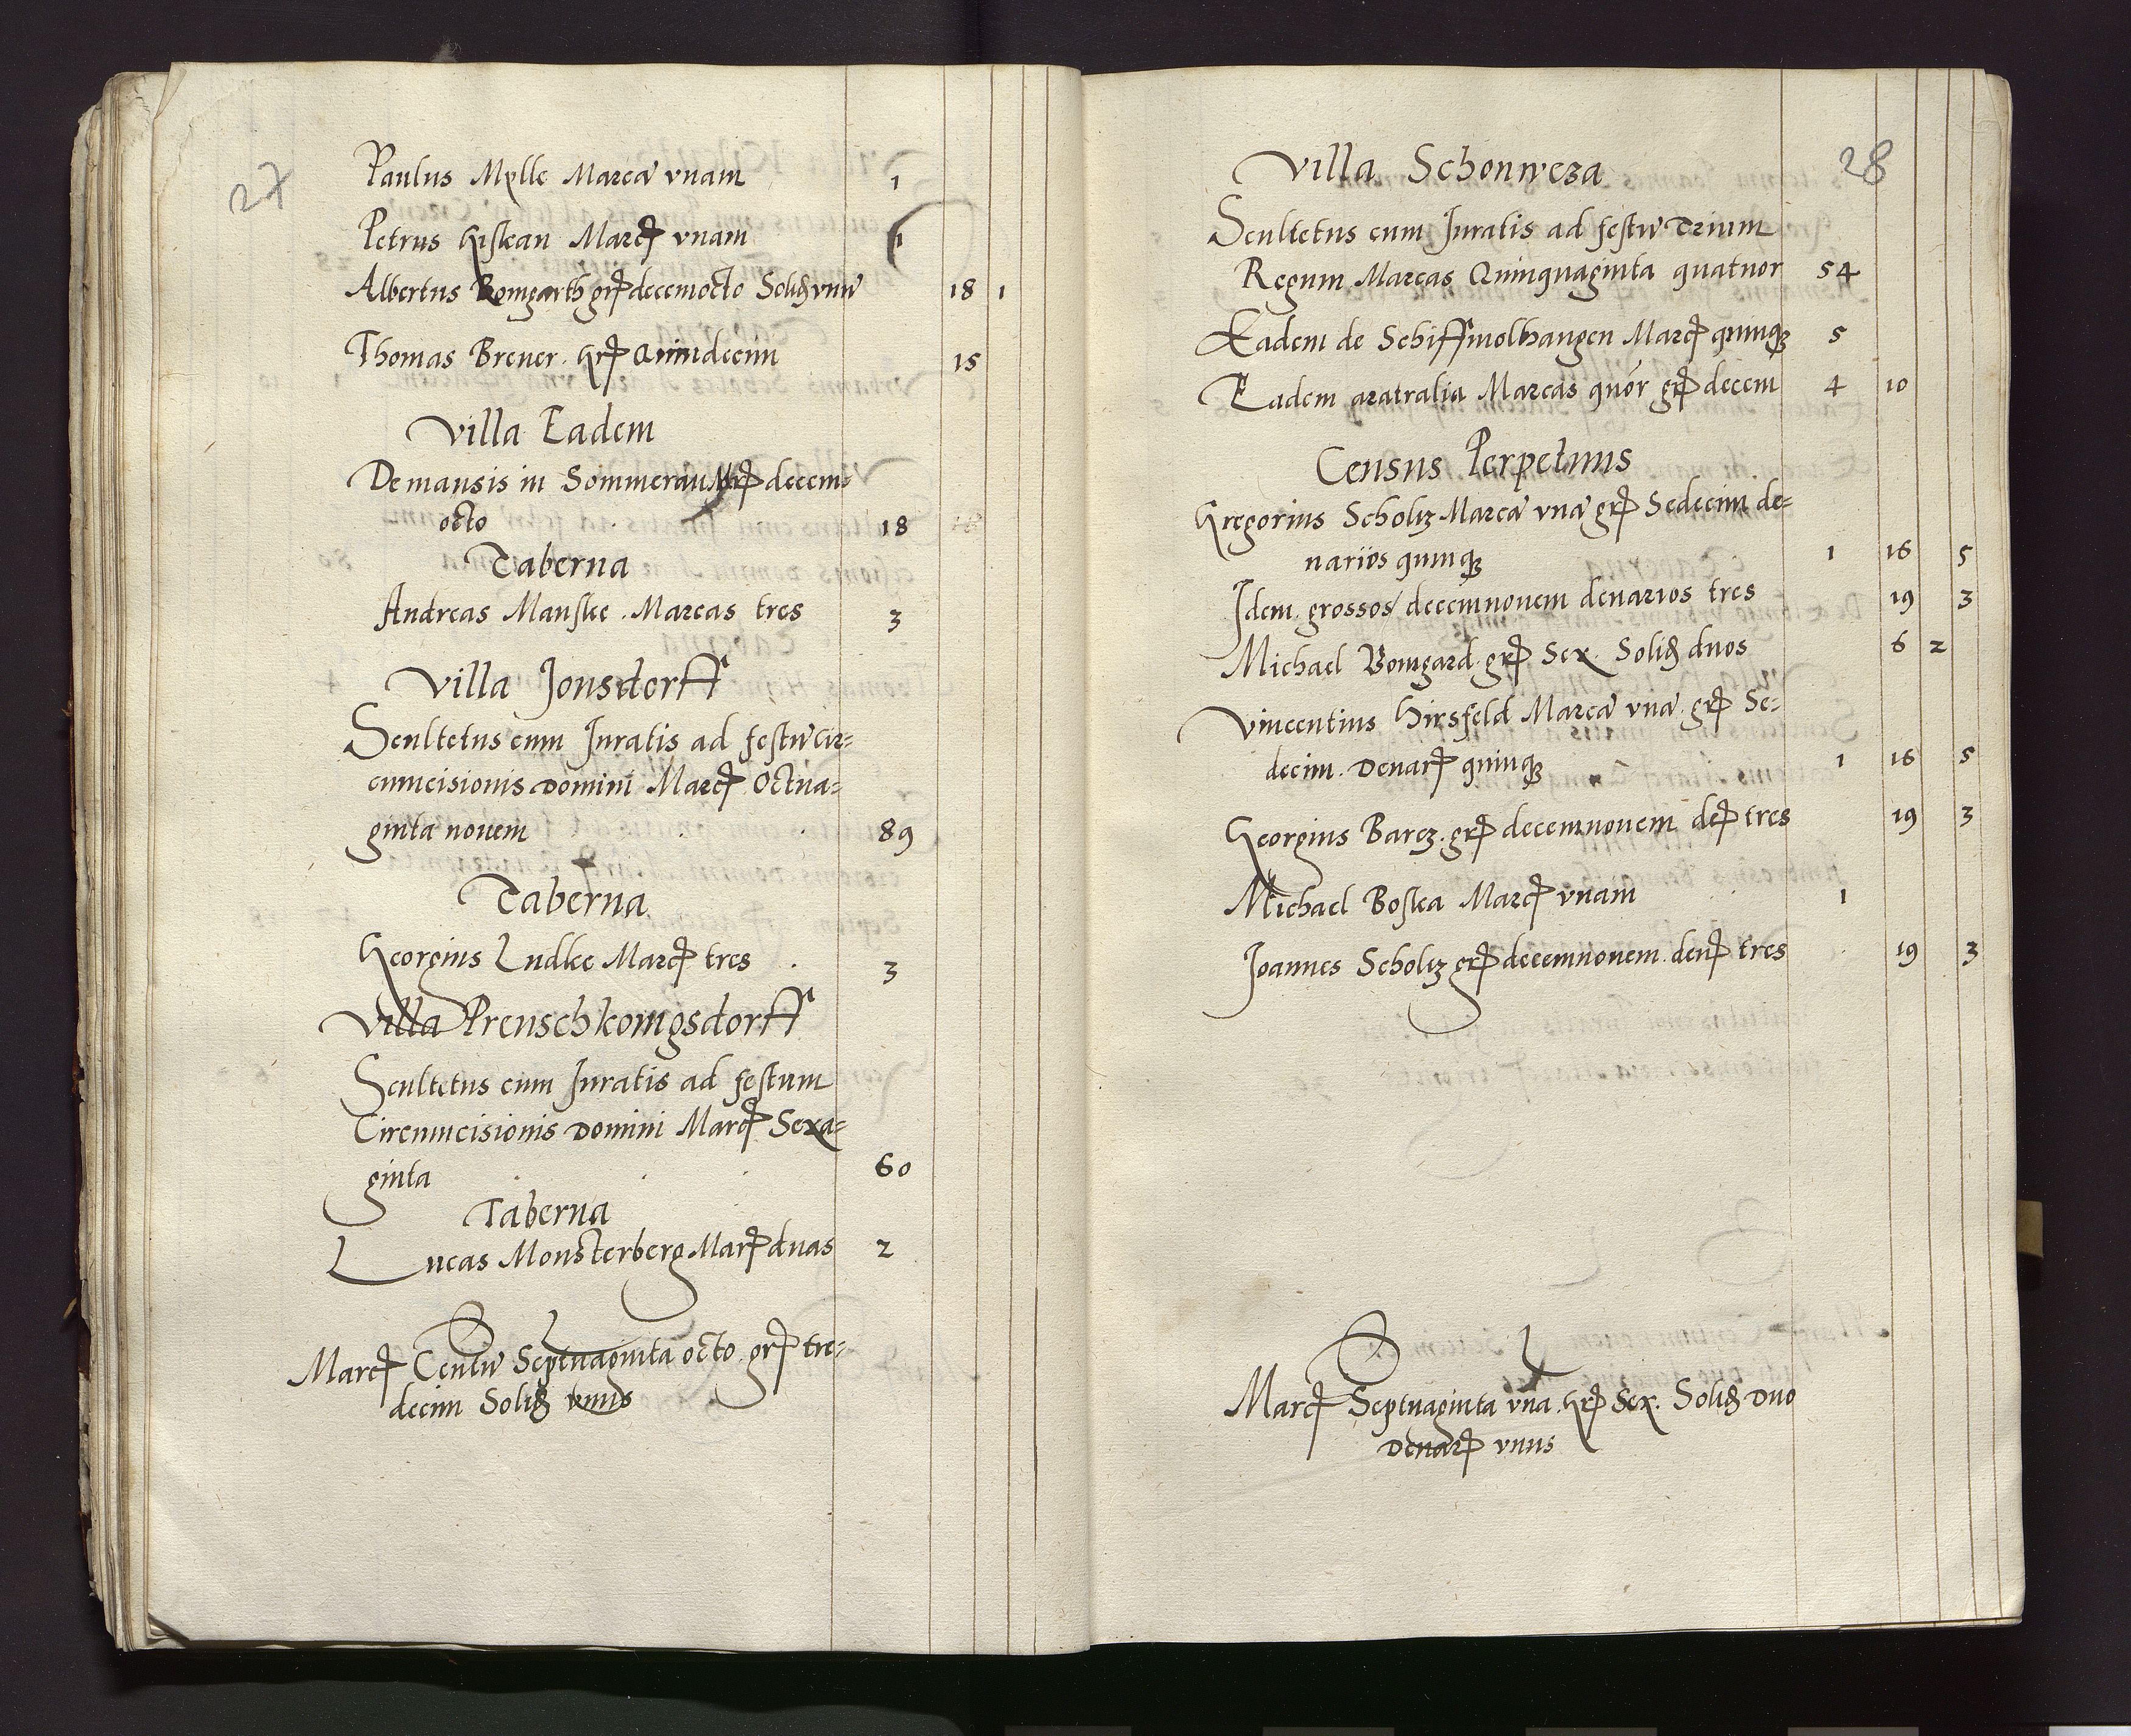 27
Paulus Mylle Marcā vnam 1
Petrus Giskan Marcꝭ vnam 1
Albertus Bomgarth grꝭ decemocto Solidꝭ vnū 18 1
Thomas Brener. Grꝭ Quindecim 15
Villa Eadem
De mansis in Sommerau Mrꝭ decem=
octo 18
Taberna
Andreas Manske. Marcas tres 3
Villa Jonsdorff
Scultetus cum Juratis ad festū Cir=
cumcisionis Domini Marcꝭ Octua=
ginta nouem 89
Taberna
Georgius Ludke Marcꝭ tres 3
Villa Preuschkonigsdorff
Scultetus cum Juratis ad festum
Circumcisionis Domini Marcꝭ Sexa=
ginta 60
Taberna
Lucas Monsterberg Marꝭ duas 2
Marcꝭ Centū Septuaginta octo grꝭ tre=
decim Solidꝭ vnus
28
Villa Schonweza
Scultetus cum Juratis ad festū Trium
Regum Marcas Quinquaginta quatuor 54
Eadem de Schiffwolhangen Marcꝭ quinqꝫ 5
Eadem aratralia Marcas quōr grꝭ decem 4 10
Census Perpetuus
Gregorius Scholtz Marcā vnā grꝭ Sedecim de=
narios quinqꝫ 1 16 5
Idem grossos decemnouem denarios tres 19 3
Michael Bomgard. grꝭ Sex. Solidꝭ duos 6 2
Vincentius Hirsfeld Marcā vnā grꝭ Se=
decim. Denarꝭ quinqꝫ 1 16 5
Georgius Barcz. grꝭ decemnouem deꝭ tres 19 3
Michael Boska Marcꝭ vnam 1
Joannes Scholtz grꝭ decemnouem. denꝭ tres 19 3
Marcꝭ Septuaginta vna. Grꝭ Sex. Solidꝭ Duo
Denarꝭ vnus